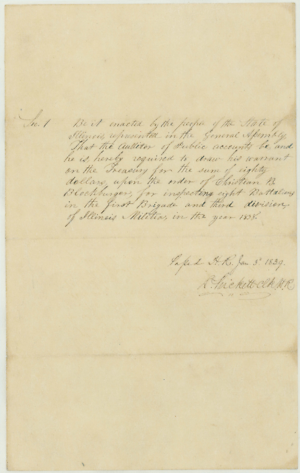 Sec 1 Be it enacted by the people of the State of
Illinois represented in the General Assembly
That the Auditor of Public accounts be, and
he is hereby required to draw his warrant
on the Treasury for the sum of eighty
dollars, upon the order of Christian B
for inspecting eight Battalions
in the first Brigade and third division
of Illinois Militia in the year 1838
Passed H. R. Jan 5 1839
Prickett Clk H.R.